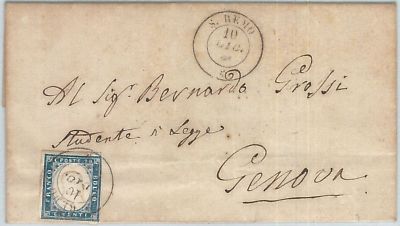 S. REMO
10
Al Sigr. Bernardo Grossi
Studente in Legge
Genova
FRANCO
POSTE
BOLLO
VENTI